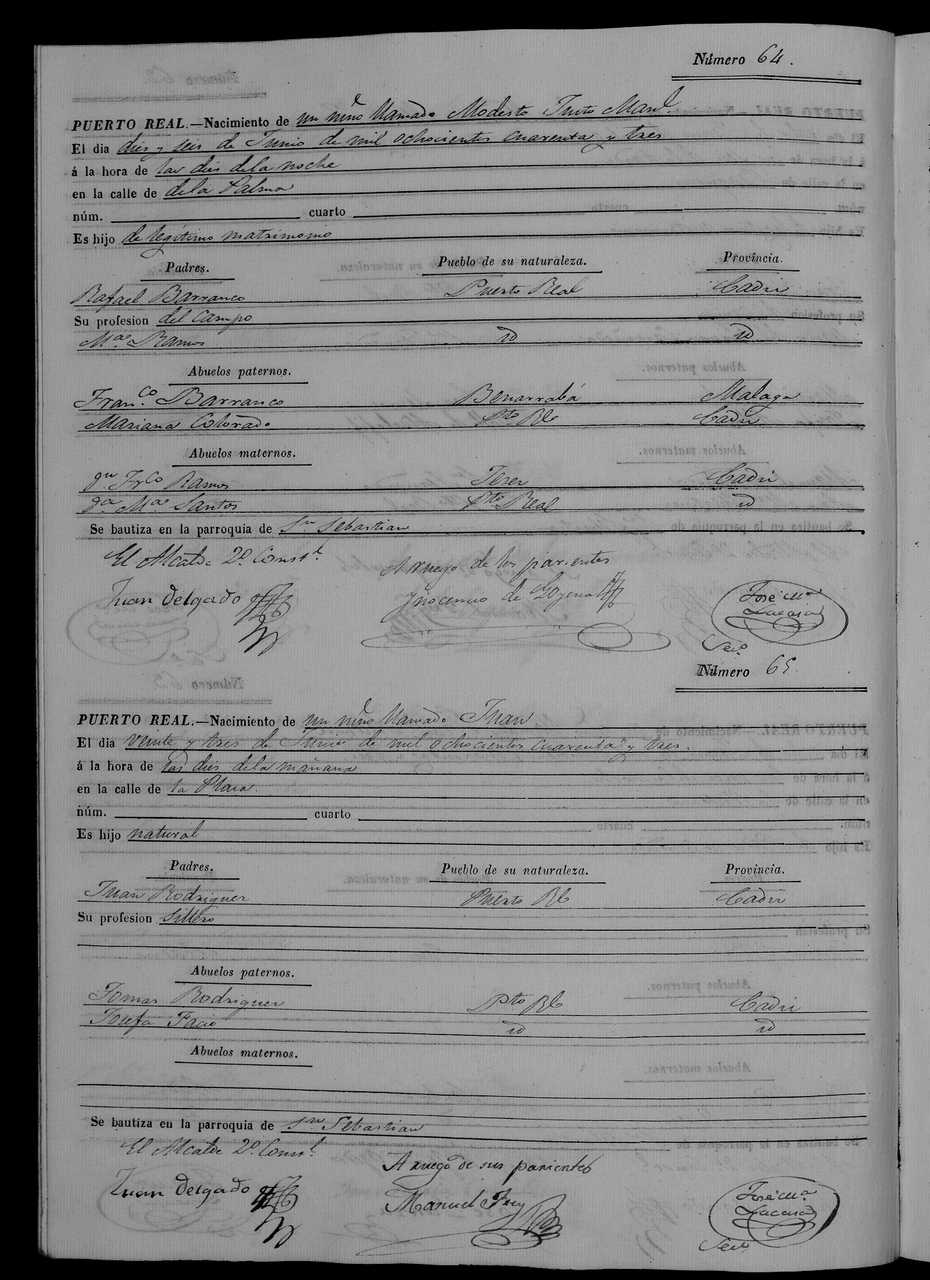 Número 64.
PUERTO REAL.—Nacimiento de un niño llamado Modesto Justo Manl.
El dia dies y seis de Junio de mil ochocientos cuarenta y tres
á la hora de las dies dela noche
en la calle de dela Palma
núm. cuarto
Es hijo de legitimo matrimonio
Padres. Pueblo de su naturaleza. Provincia.
Rafael Barranco Puerto Real Cadiz
Su profesion del campo
Ma. Ramos id id
Abuelos paternos.
Franco. Barranco Benarrabá Malaga
Mariana Colorado Pto Rl Cadiz
Abuelos maternos.
Frco Ramos Jerez Cadiz
Ma Santos Pto Real id
Se bautiza en la parroquia de Sn Sebastian
El Alcalde 2º. Constl.
A ruego de los parientes
Juan Delgado Ynocencio de José Ma.
Lacasa
Seco.
Número 65.
PUERTO REAL.—Nacimiento de un niño llamado Juan
El dia veinte y tres de Junio de mil ochocientos cuarenta y tres.
á la hora de las dies dela mañana
en la calle de la Plaza
núm. cuarto
Es hijo natural
Padres. Pueblo de su naturaleza. Provincia.
Juan Rodriguez Puerto Rl Cadiz
Su profesion Sillero
Abuelos paternos.
Tomas Rodriguez Pto Rl Cadiz
Josefa id id
Abuelos maternos.
Se bautiza en la parroquia de Sn Sebastian
El Alcalde 2º. Constl.
A ruego de sus parientes
Juan Delgado Manuel José Ma.
Lacasa
Seco.